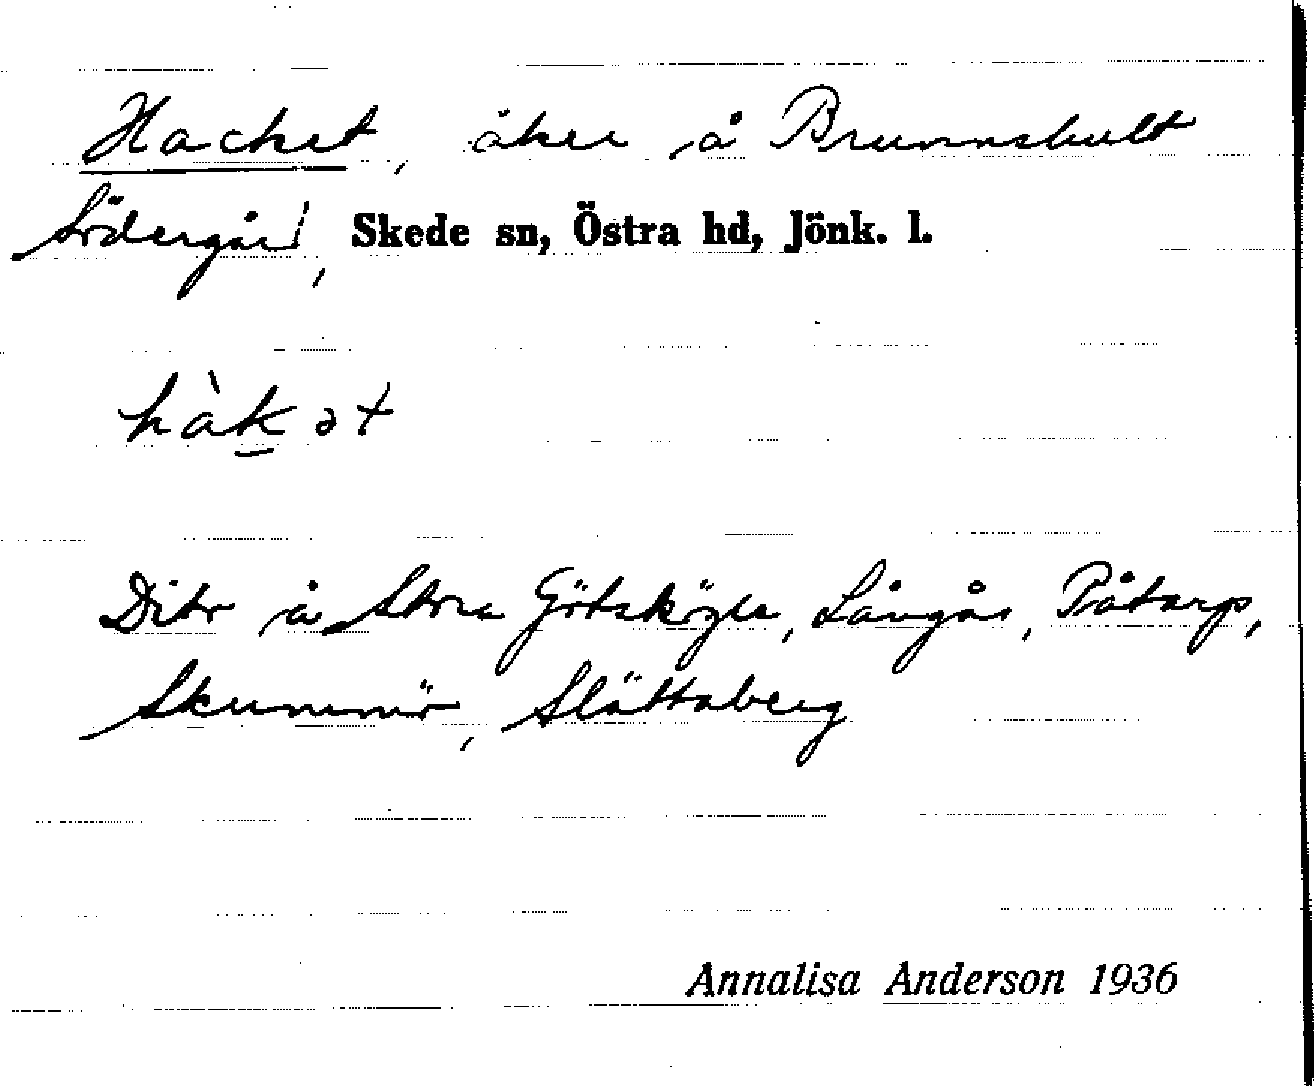 Hacket, åker å Brunnshult
Södergård, Skede sn, Östra hd, Jönk. l.
hàkət
Dito å Stora Götsköp­le, Långås, Påtarp,
Skummör, Slättaberg
Annalisa Anderson 1936